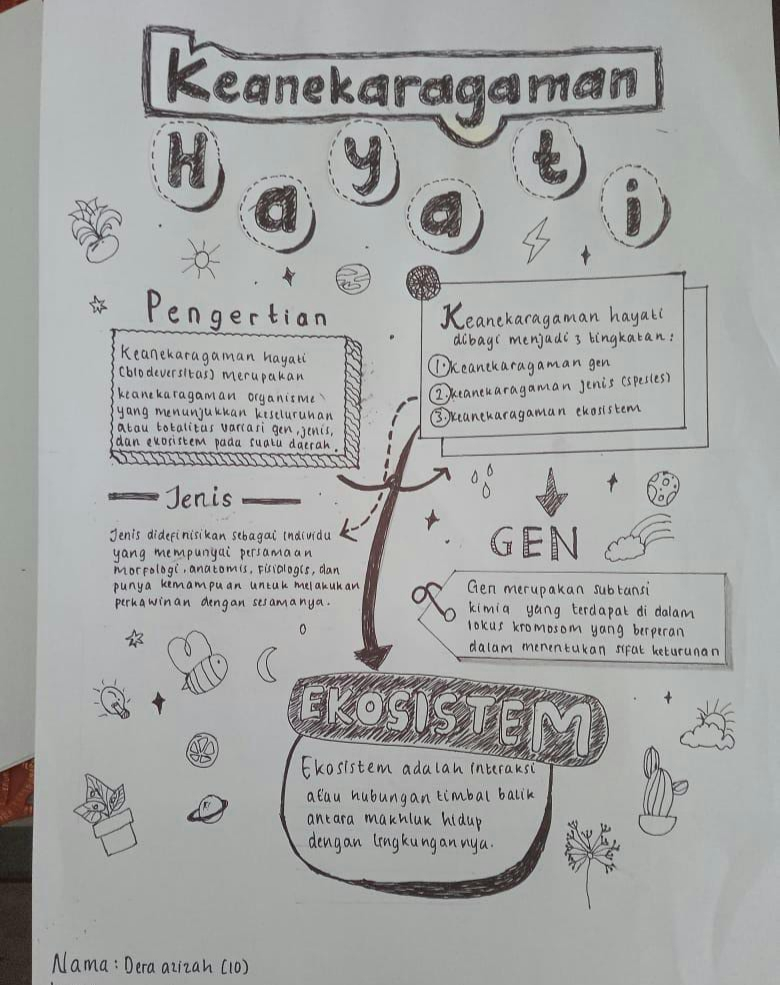 Keanekaragaman
Hayati
Pengertian
Keanekaragaman hayati
(biodeversitas) merupakan
keanekaragaman organisme
yang menunjukkan keseluruhan
atau totalitas variasi gen, jenis,
dan ekosistem pada suatu daerah.
Keanekaragaman hayati
dibagi menjadi 3 tingkatan:
1. Keanekaragaman gen
2. keanekaragaman jenis (spesies)
3. keanekaragaman ekosistem
Jenis
Jenis didefinisikan sebagai individu
yang mempunyai persamaan
morfologi, anatomis, fisiologis, dan
punya kemampuan untuk melakukan
perkawinan dengan sesamanya.
GEN
Gen merupakan subtansi
kimia yang terdapat di dalam
lokus kromosom yang berperan
dalam menentukan sifat keturunan
EKOSISTEM
Ekosistem adalah interaksi
atau hubungan timbal balik
antara makhluk hidup
dengan lingkungannya.
Nama: Dera azizah (10)